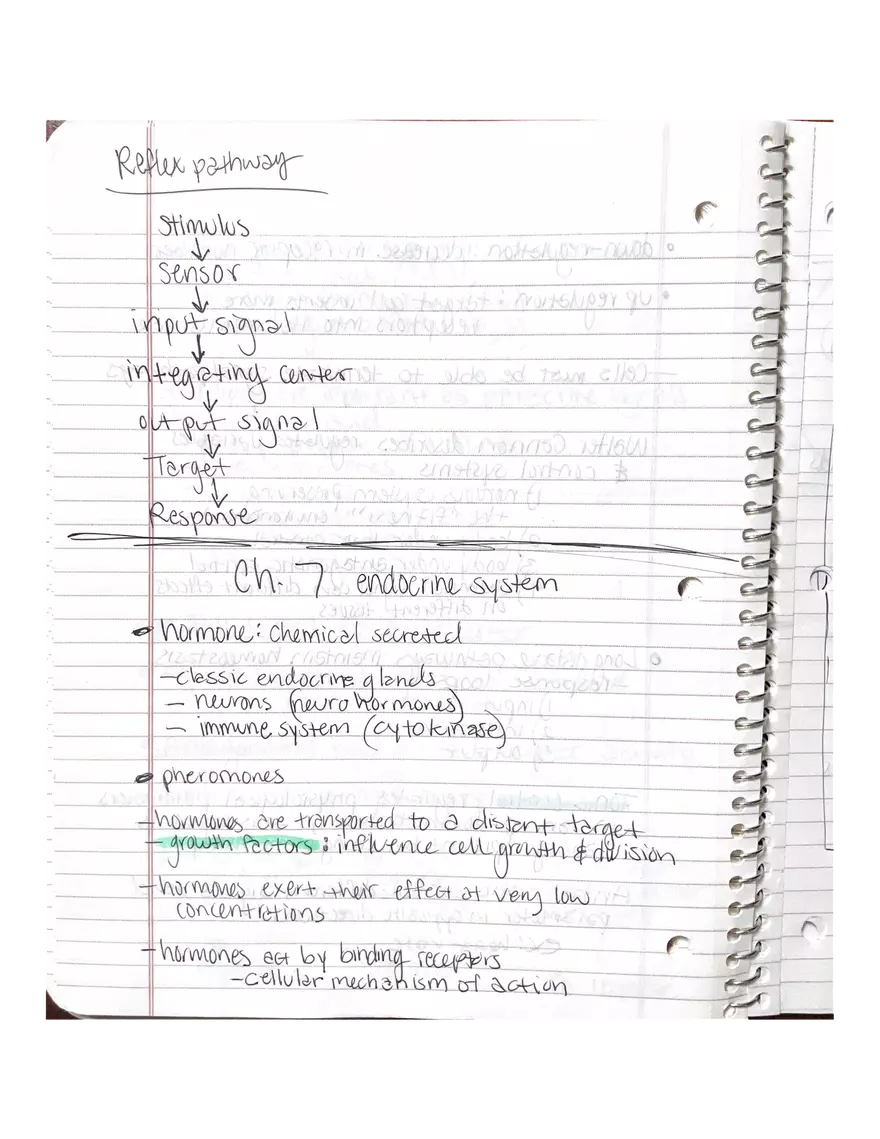 Reflex pathway
Stimulus
↓
Sensor
↓
input signal
↓
integrating center
↓
output signal
↓
Target
↓
Response
Ch. 7 endocrine system
• hormone: chemical secreted
-classic endocrine glands
- neurons (neurohormones)
- immune system (cytokinase)
• pheromones
-hormones are transported to a distant target
- growth factors: influence cell growth & division
-hormones exert their effect at very low
concentrations
-hormones act by binding receptors
-cellular mechanism of action